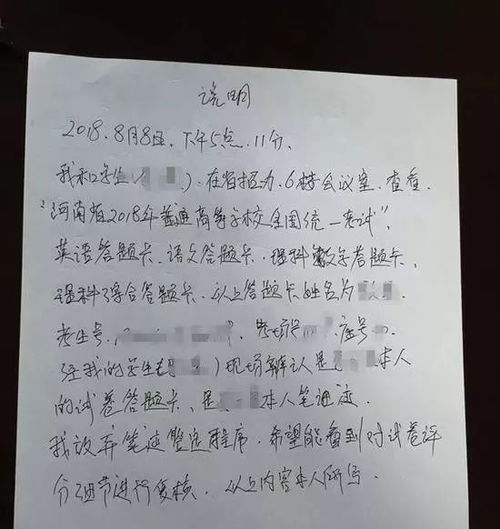 说明
2018.8月8日,下午5点.11分.
我和学生( ),在省招办.6楼会议室.查看.
"河南省2018年普通高等学校全国统一考试".
英语答题卡、语文答题卡.理科数学答题卡、
理科综合答题卡.以上答题卡姓名为
考生号. 考场号 .座号
经我的学生 )现场辨认是 本人
的试卷答题卡、是 本人笔迹.
我放弃笔迹鉴定程序.希望能看到对试卷评
分细节进行复核.以上内容本人所写.